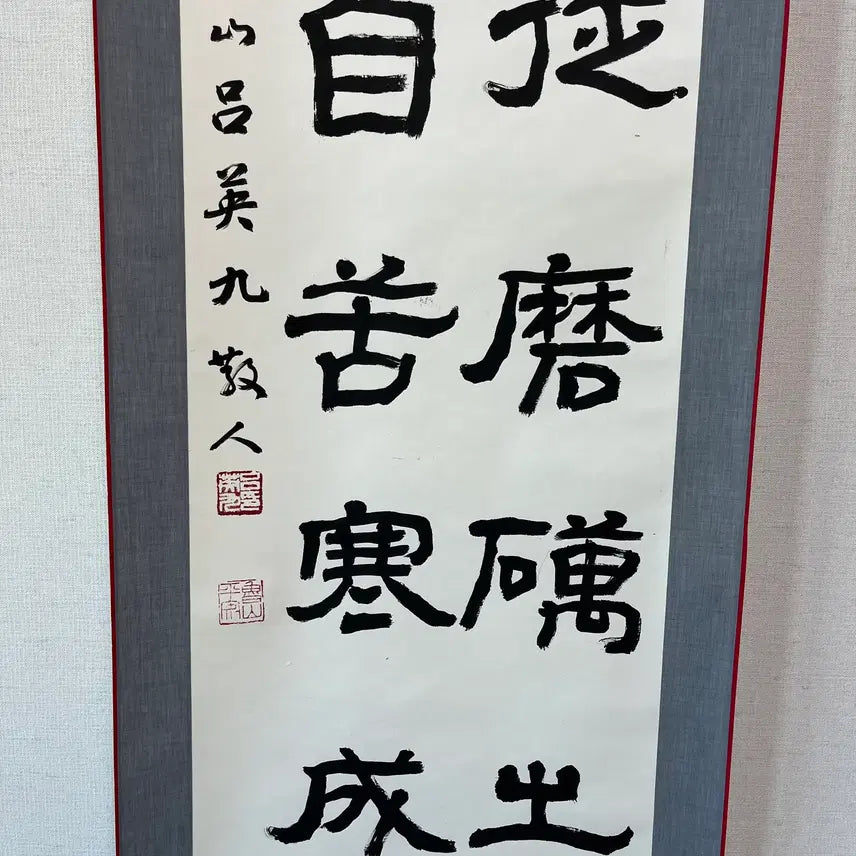 從磨礪出
自苦寒成
山呂英九散人